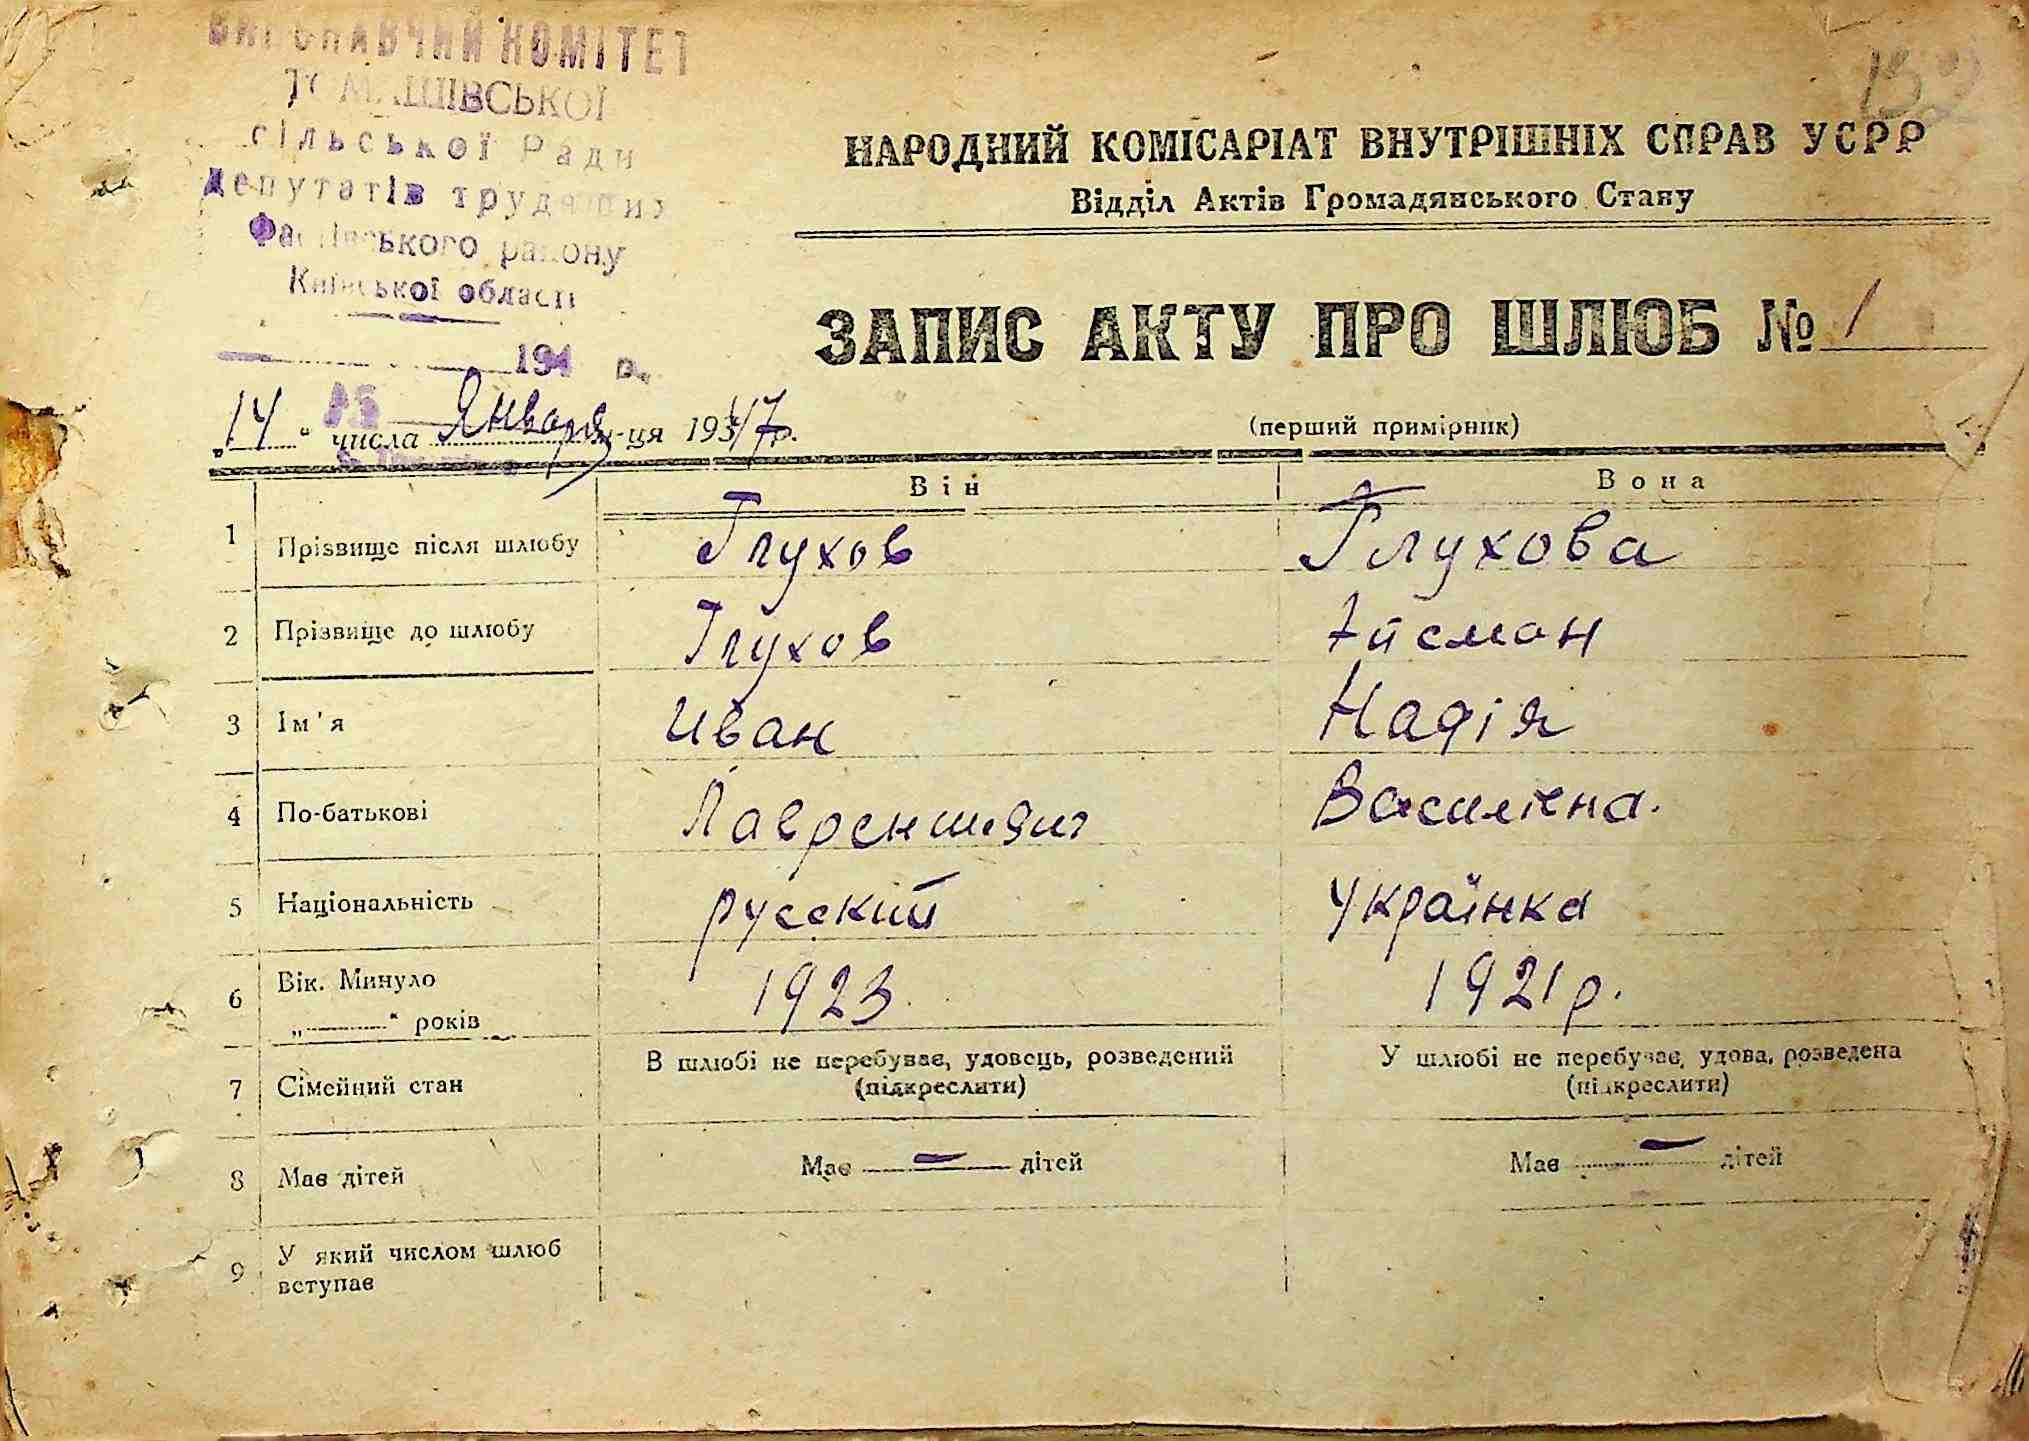 ВИКОНАВЧИЙ КОМІТЕТ
ТОМАШІВСЬКОЇ
сільської Ради
депутатів трудящих
Фастівського району
Київської області
194 р.
НАРОДНИЙ КОМІСАРІАТ ВНУТРІШНІХ СПРАВ УСРР
Відділ Актів Громадянського Стану
ЗАПИС АКТУ ПРО ШЛЮБ № 1
„14“ числа Января м-ця 1947 р.
(перший примірник)
Він Вона
1 Прізвище після шлюбу Глухов Глухова
2 Прізвище до шлюбу Глухов
3 Ім'я Иван Надія
4 По-батькові Лаврентиевич Василівна.
5 Національність русский Українка
6 Вік. Минуло 1923 1921 р.
„ “ років
7 Сімейний стан В шлюбі не перебуває, удовець, розведений (підкреслити) У шлюбі не перебуває, удова, розведена (підкреслити)
8 Має дітей Має — дітей Має — дітей
9 У який числом шлюб
вступає